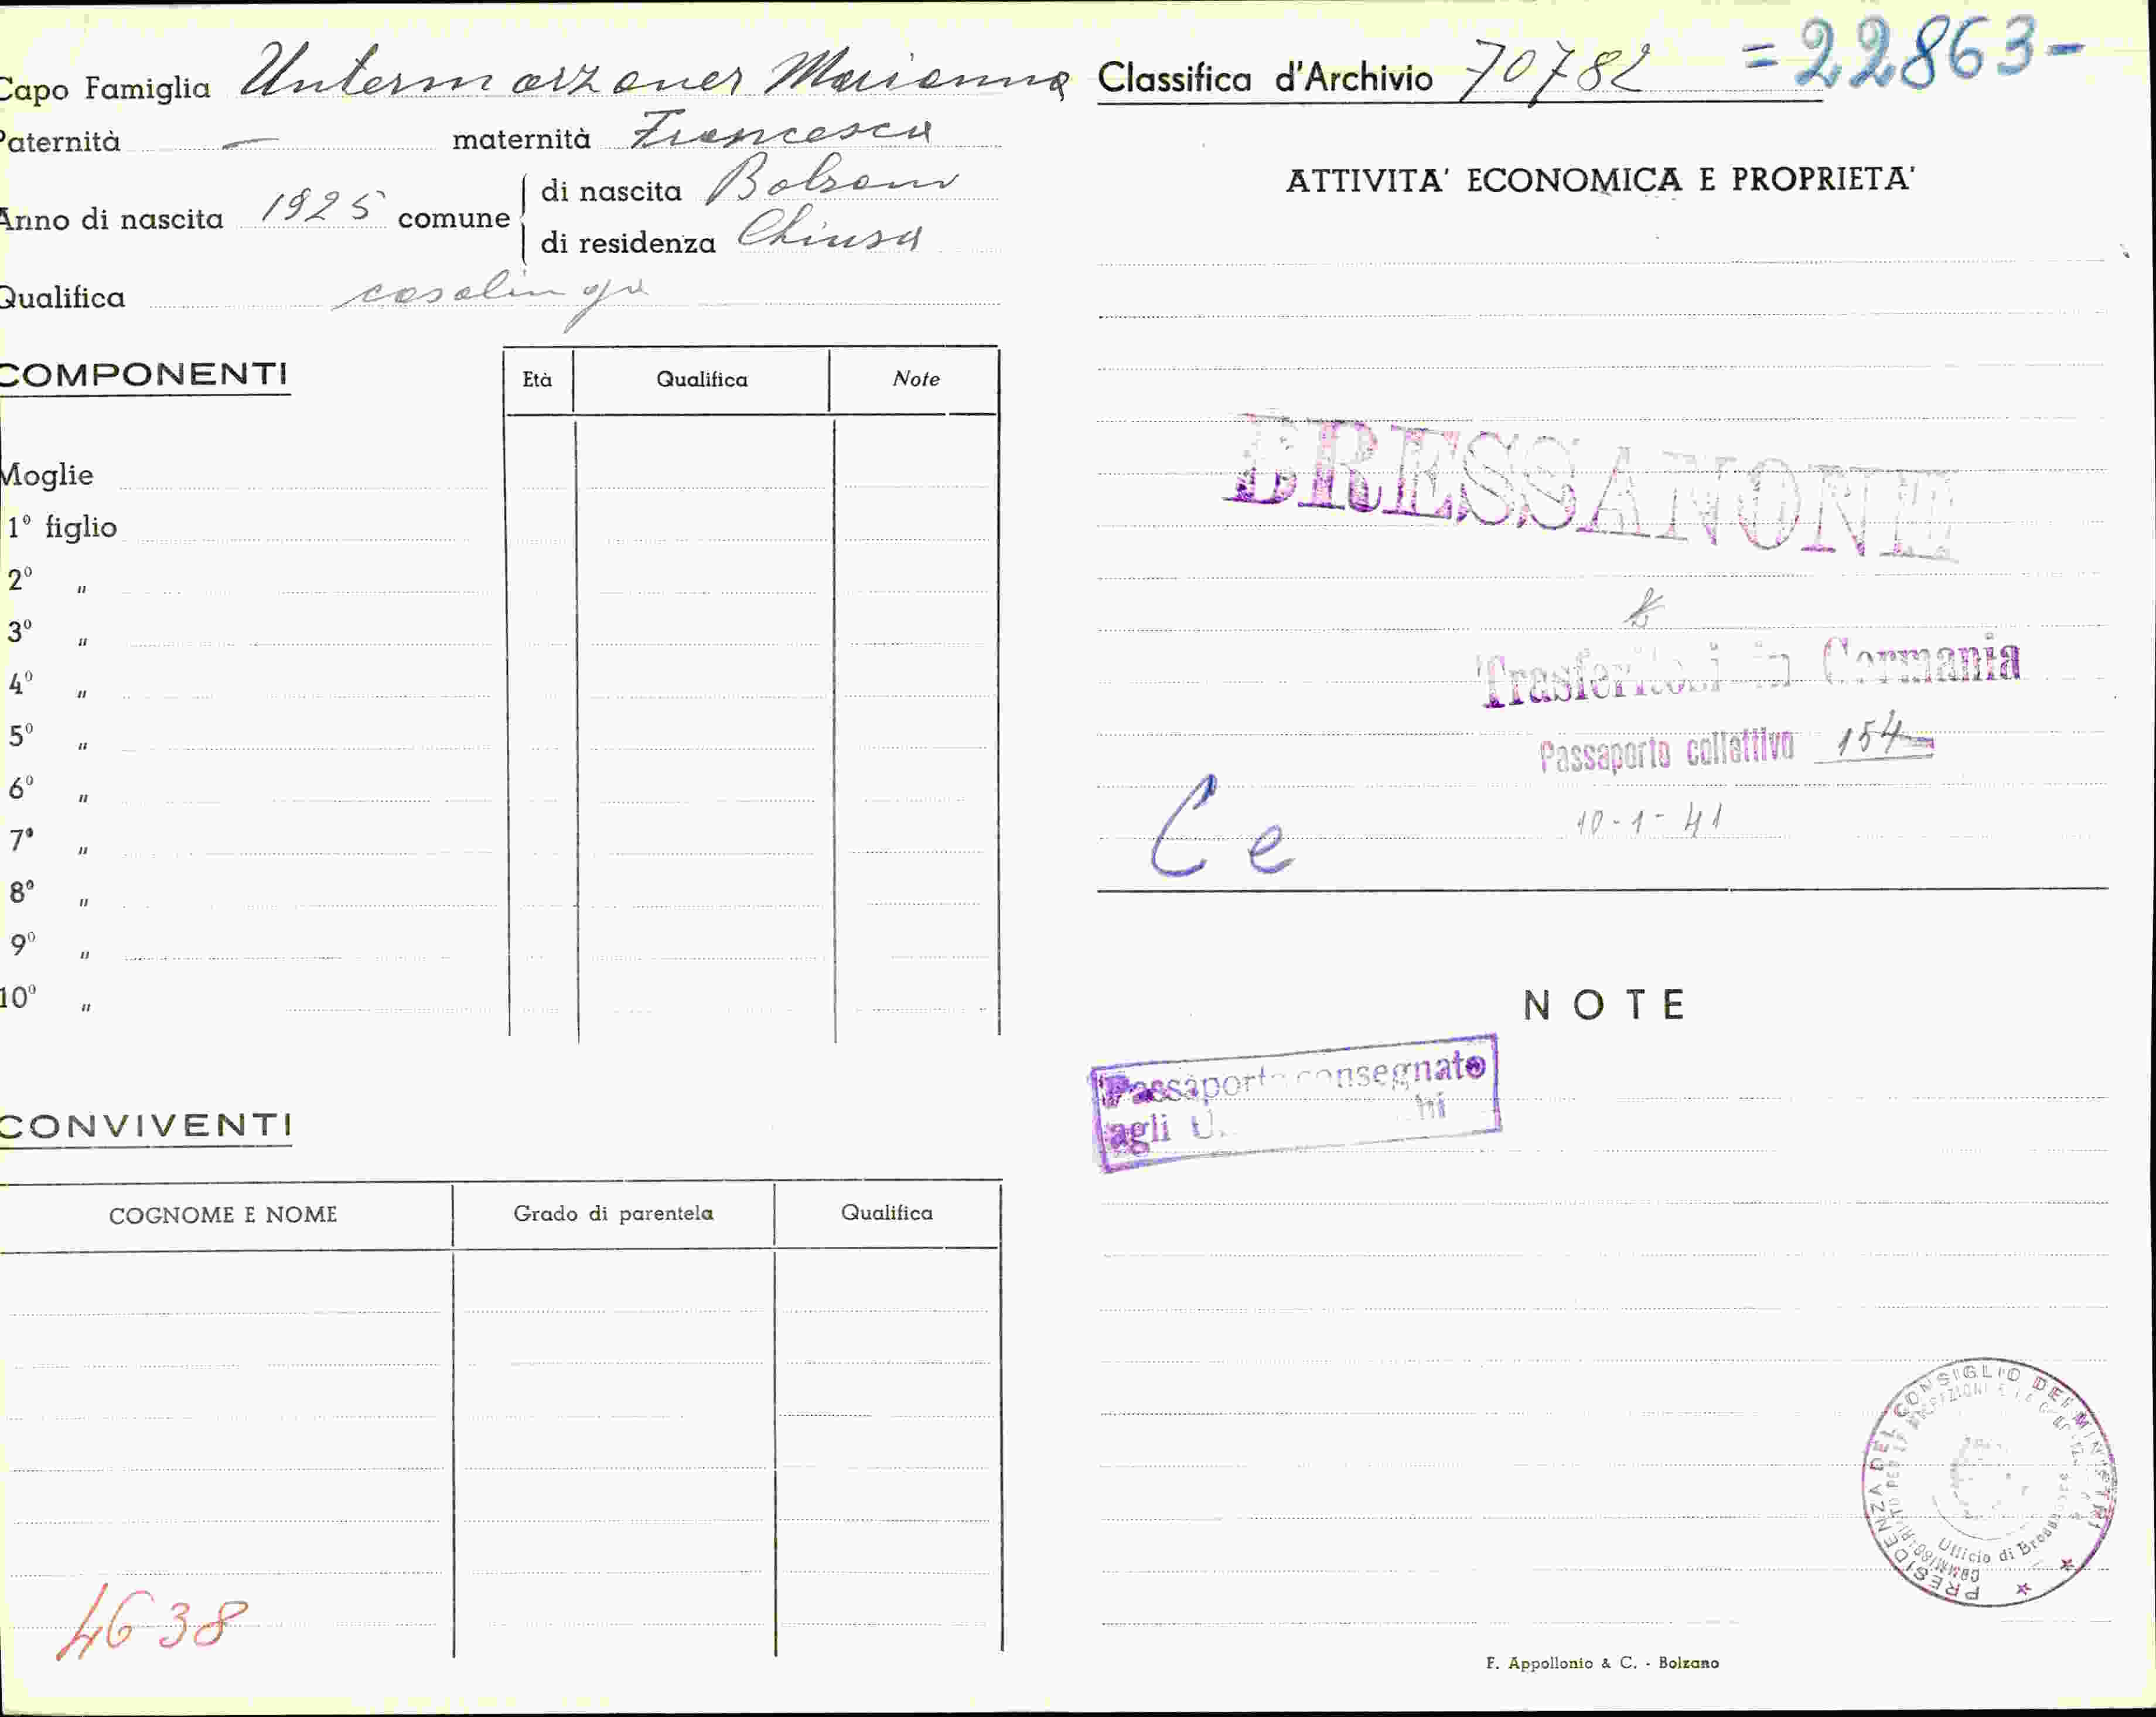 Capo Famiglia Untermarzoner Marianna
Paternità — maternità Francesca
Anno di nascita 1925 comune
di nascita Bolzano
di residenza Chiusa
Qualifica casalinga
COMPONENTI
Età Qualifica Note
Moglie
1° figlio
2° "
3° "
4° "
5° "
6° "
7° "
8° "
9° "
10° "
CONVIVENTI
COGNOME E NOME Grado di parentela Qualifica
4638
Classifica d'Archivio 70782 =22863-
ATTIVITA' ECONOMICA E PROPRIETA'
BRESSANONE
Trasferitosi in Germania
Passaporto collettivo 154
10-1-41
Ce
NOTE
Passaporto consegnato
agli
PRESIDENZA DEL CONSIGLIO DEI MINISTRI
Ufficio di Bressanone
F. Appollonio & C. - Bolzano